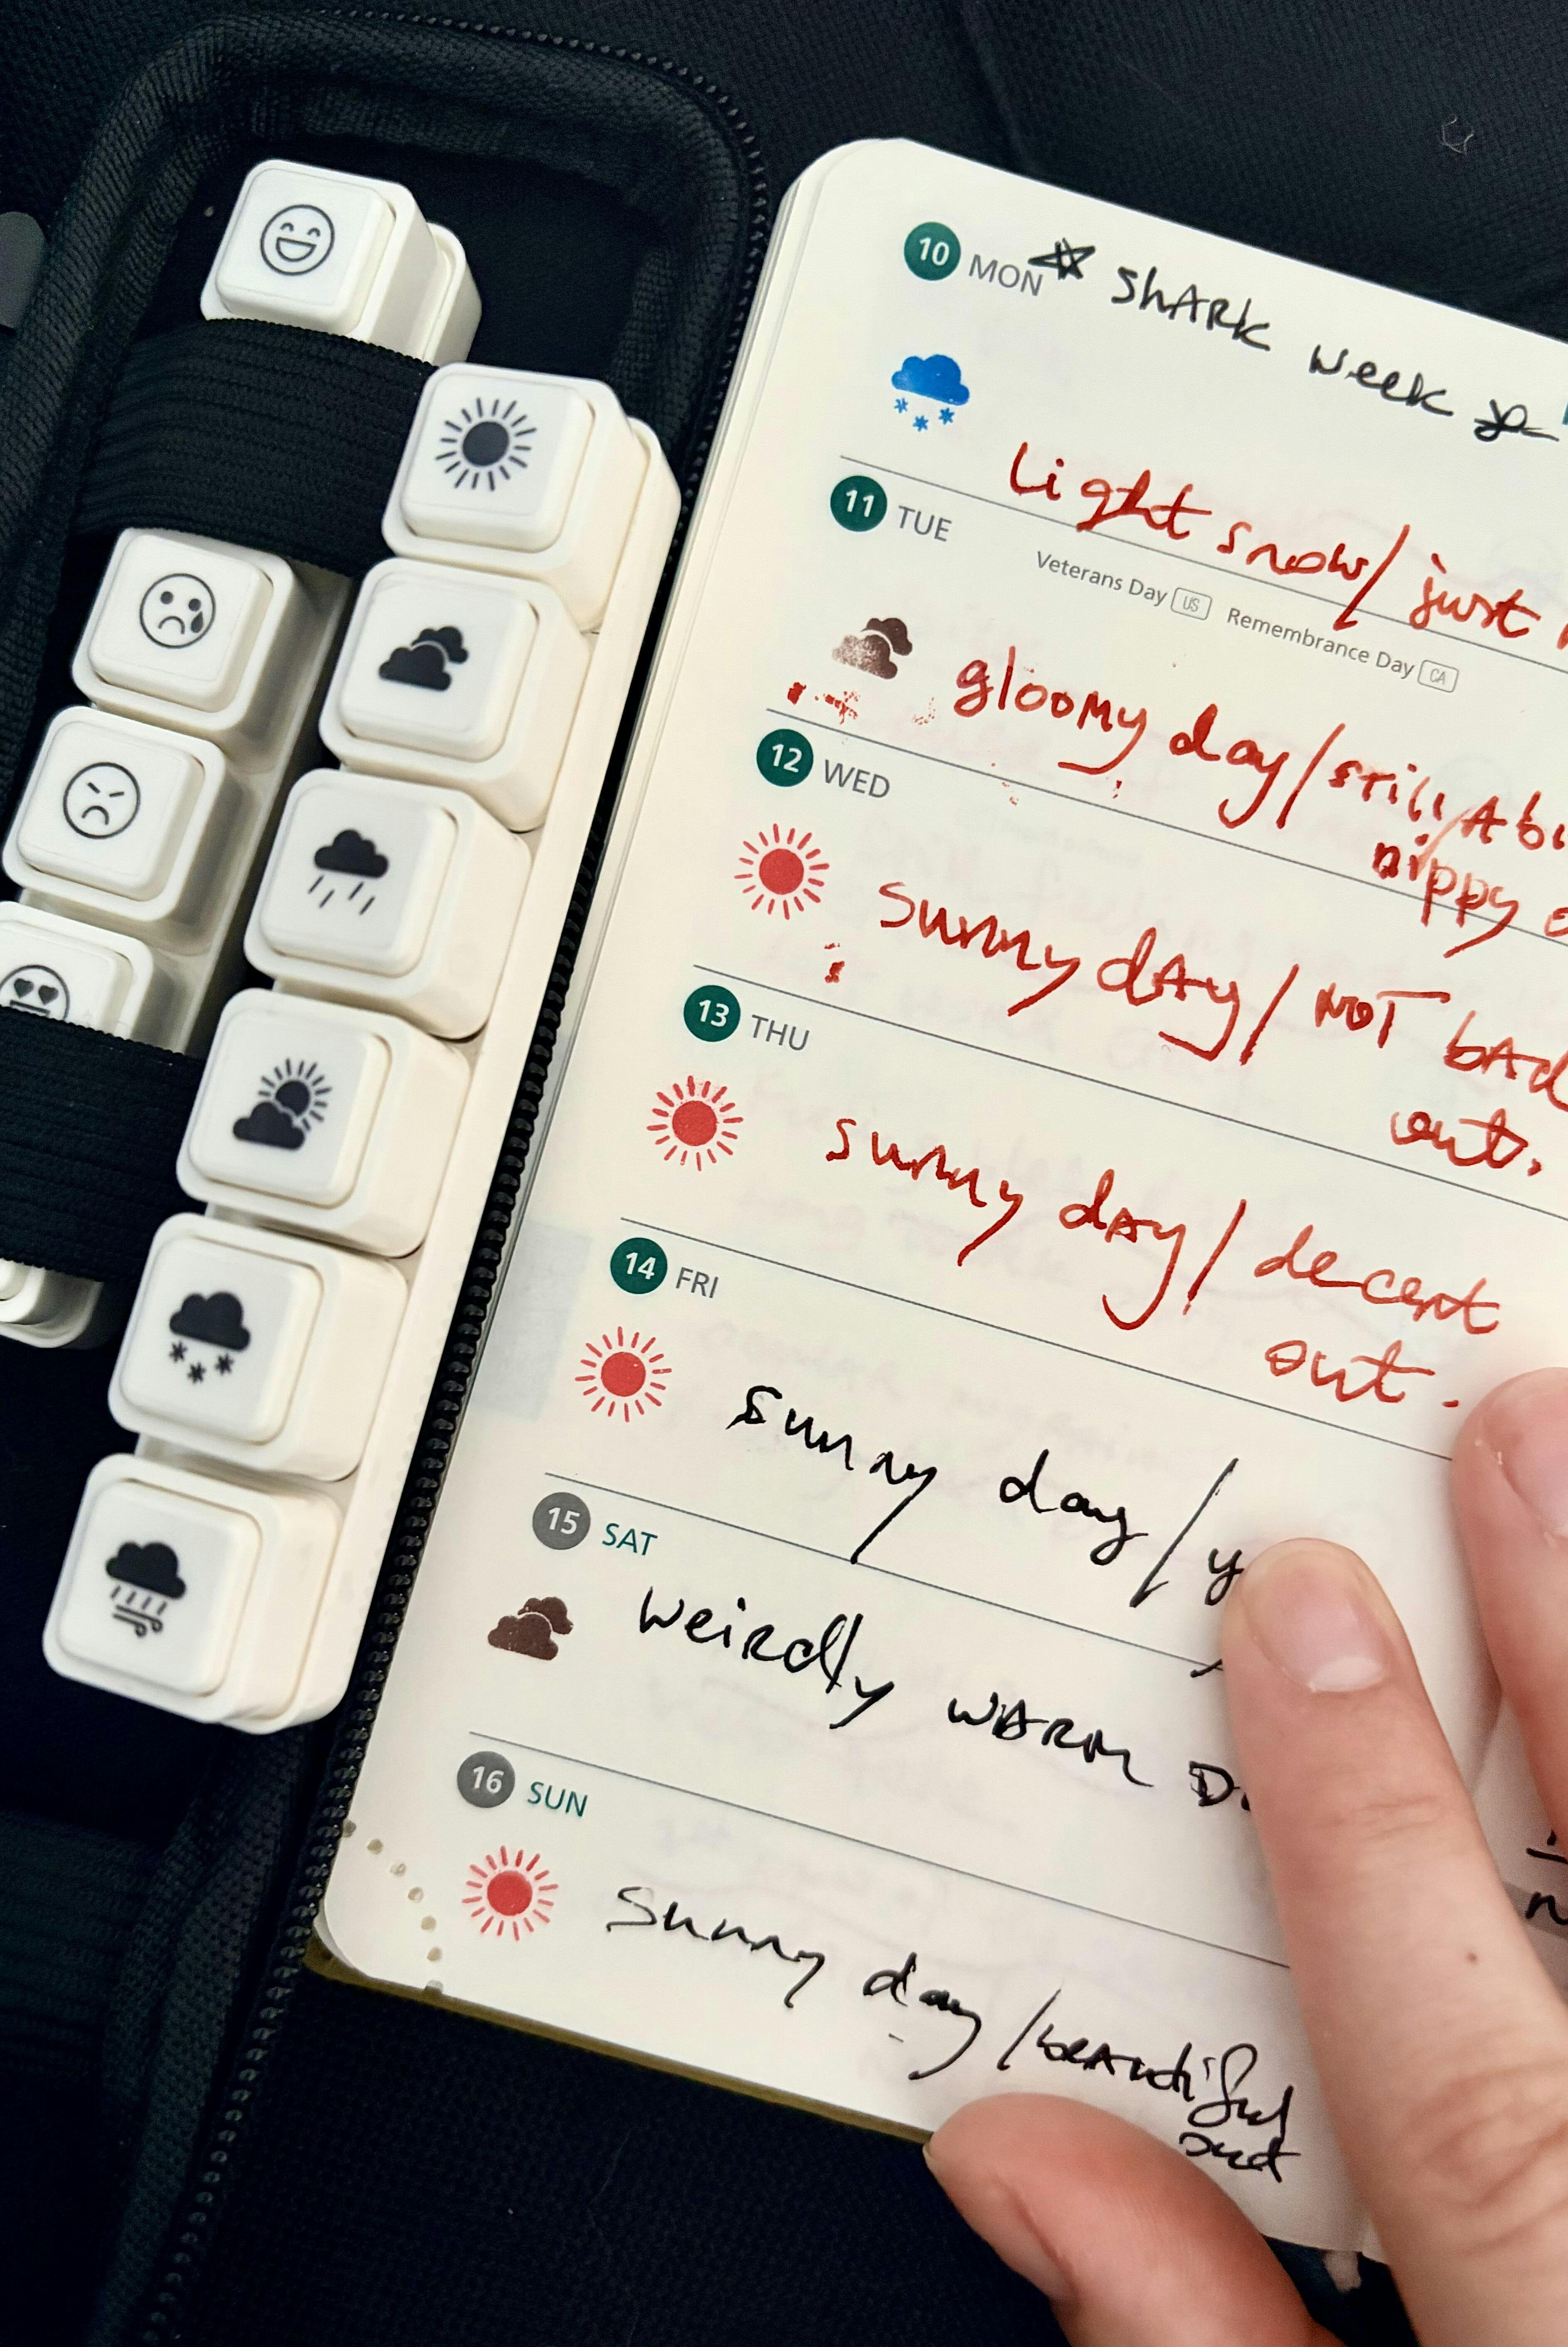 10 MON SHARK Week
Light snow/ just
11 TUE
Veterans Day US Remembrance Day CA
gloomy day/still A
nippy
12 WED
sunny dAy/ NOT bAd
out.
13 THU
sunny dAy/ decent
out.
14 FRI
sunny day/
15 SAT
weirdly wARM
16 SUN
Sunny day/beAutiful
out